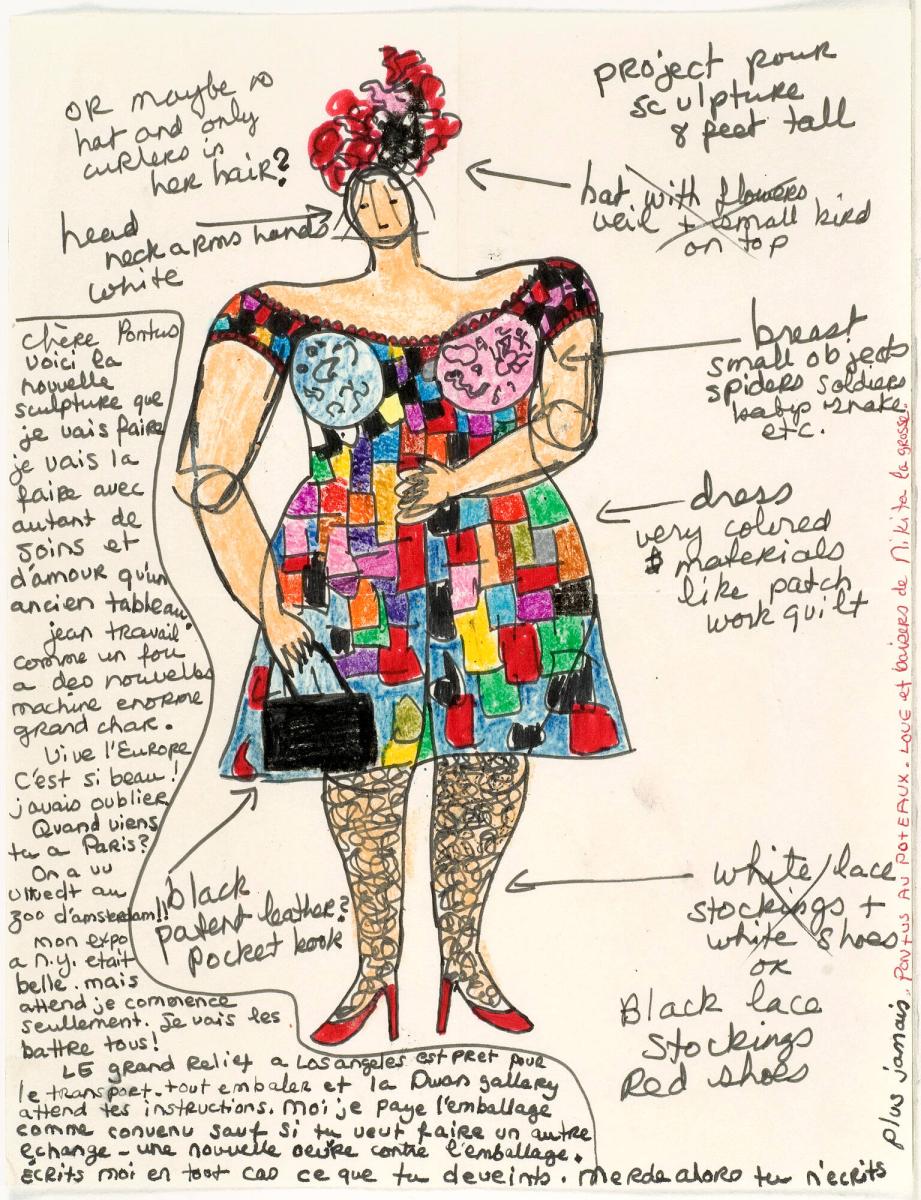 OR maybe no
hat and only
curlers in
her hair?
project pour
sculpture
8 feet tall
hat with flowers
veil + small bird
on top
head
neck arms hands
white
breast
small objects
spiders soldiers
baby snake
etc.
dress
very colored
materials
like patch
work quilt
black
patent leather?
pocket book
white lace
stockings +
white shoes
or
Black lace
stockings
Red shoes
chère Pontus
voici la
nouvelle
sculpture que
je vais faire
je vais la
faire avec
autant de
soins et
d'amour qu'un
ancien tableau.
jean travail
comme un fou
a des nouvelles
machine enorme
grand char.
Vive l'Europe
C'est si beau!
j'avais oublier
Quand viens
tu a Paris?
On a vu
au
zoo d'amsterdam!!
mon expo
a N.Y. etait
belle. mais
attend je commence
seullement. Je vais les
battre tous!
LE grand Relief a Los angeles est PRET pour
le transport. tout embaler et la Dwan gallery
attend tes instructions. Moi je paye l'emballage
comme convenu sauf si tu veut faire un autre
echange - une nouvelle oeuvre contre l'emballage.
Ecrits moi en tout cas ce que tu deveints. Merde alors tu n'ecrits
plus jamais. Pontus AU POTEAUX. LOVE et baisers de Nikita la grosse.